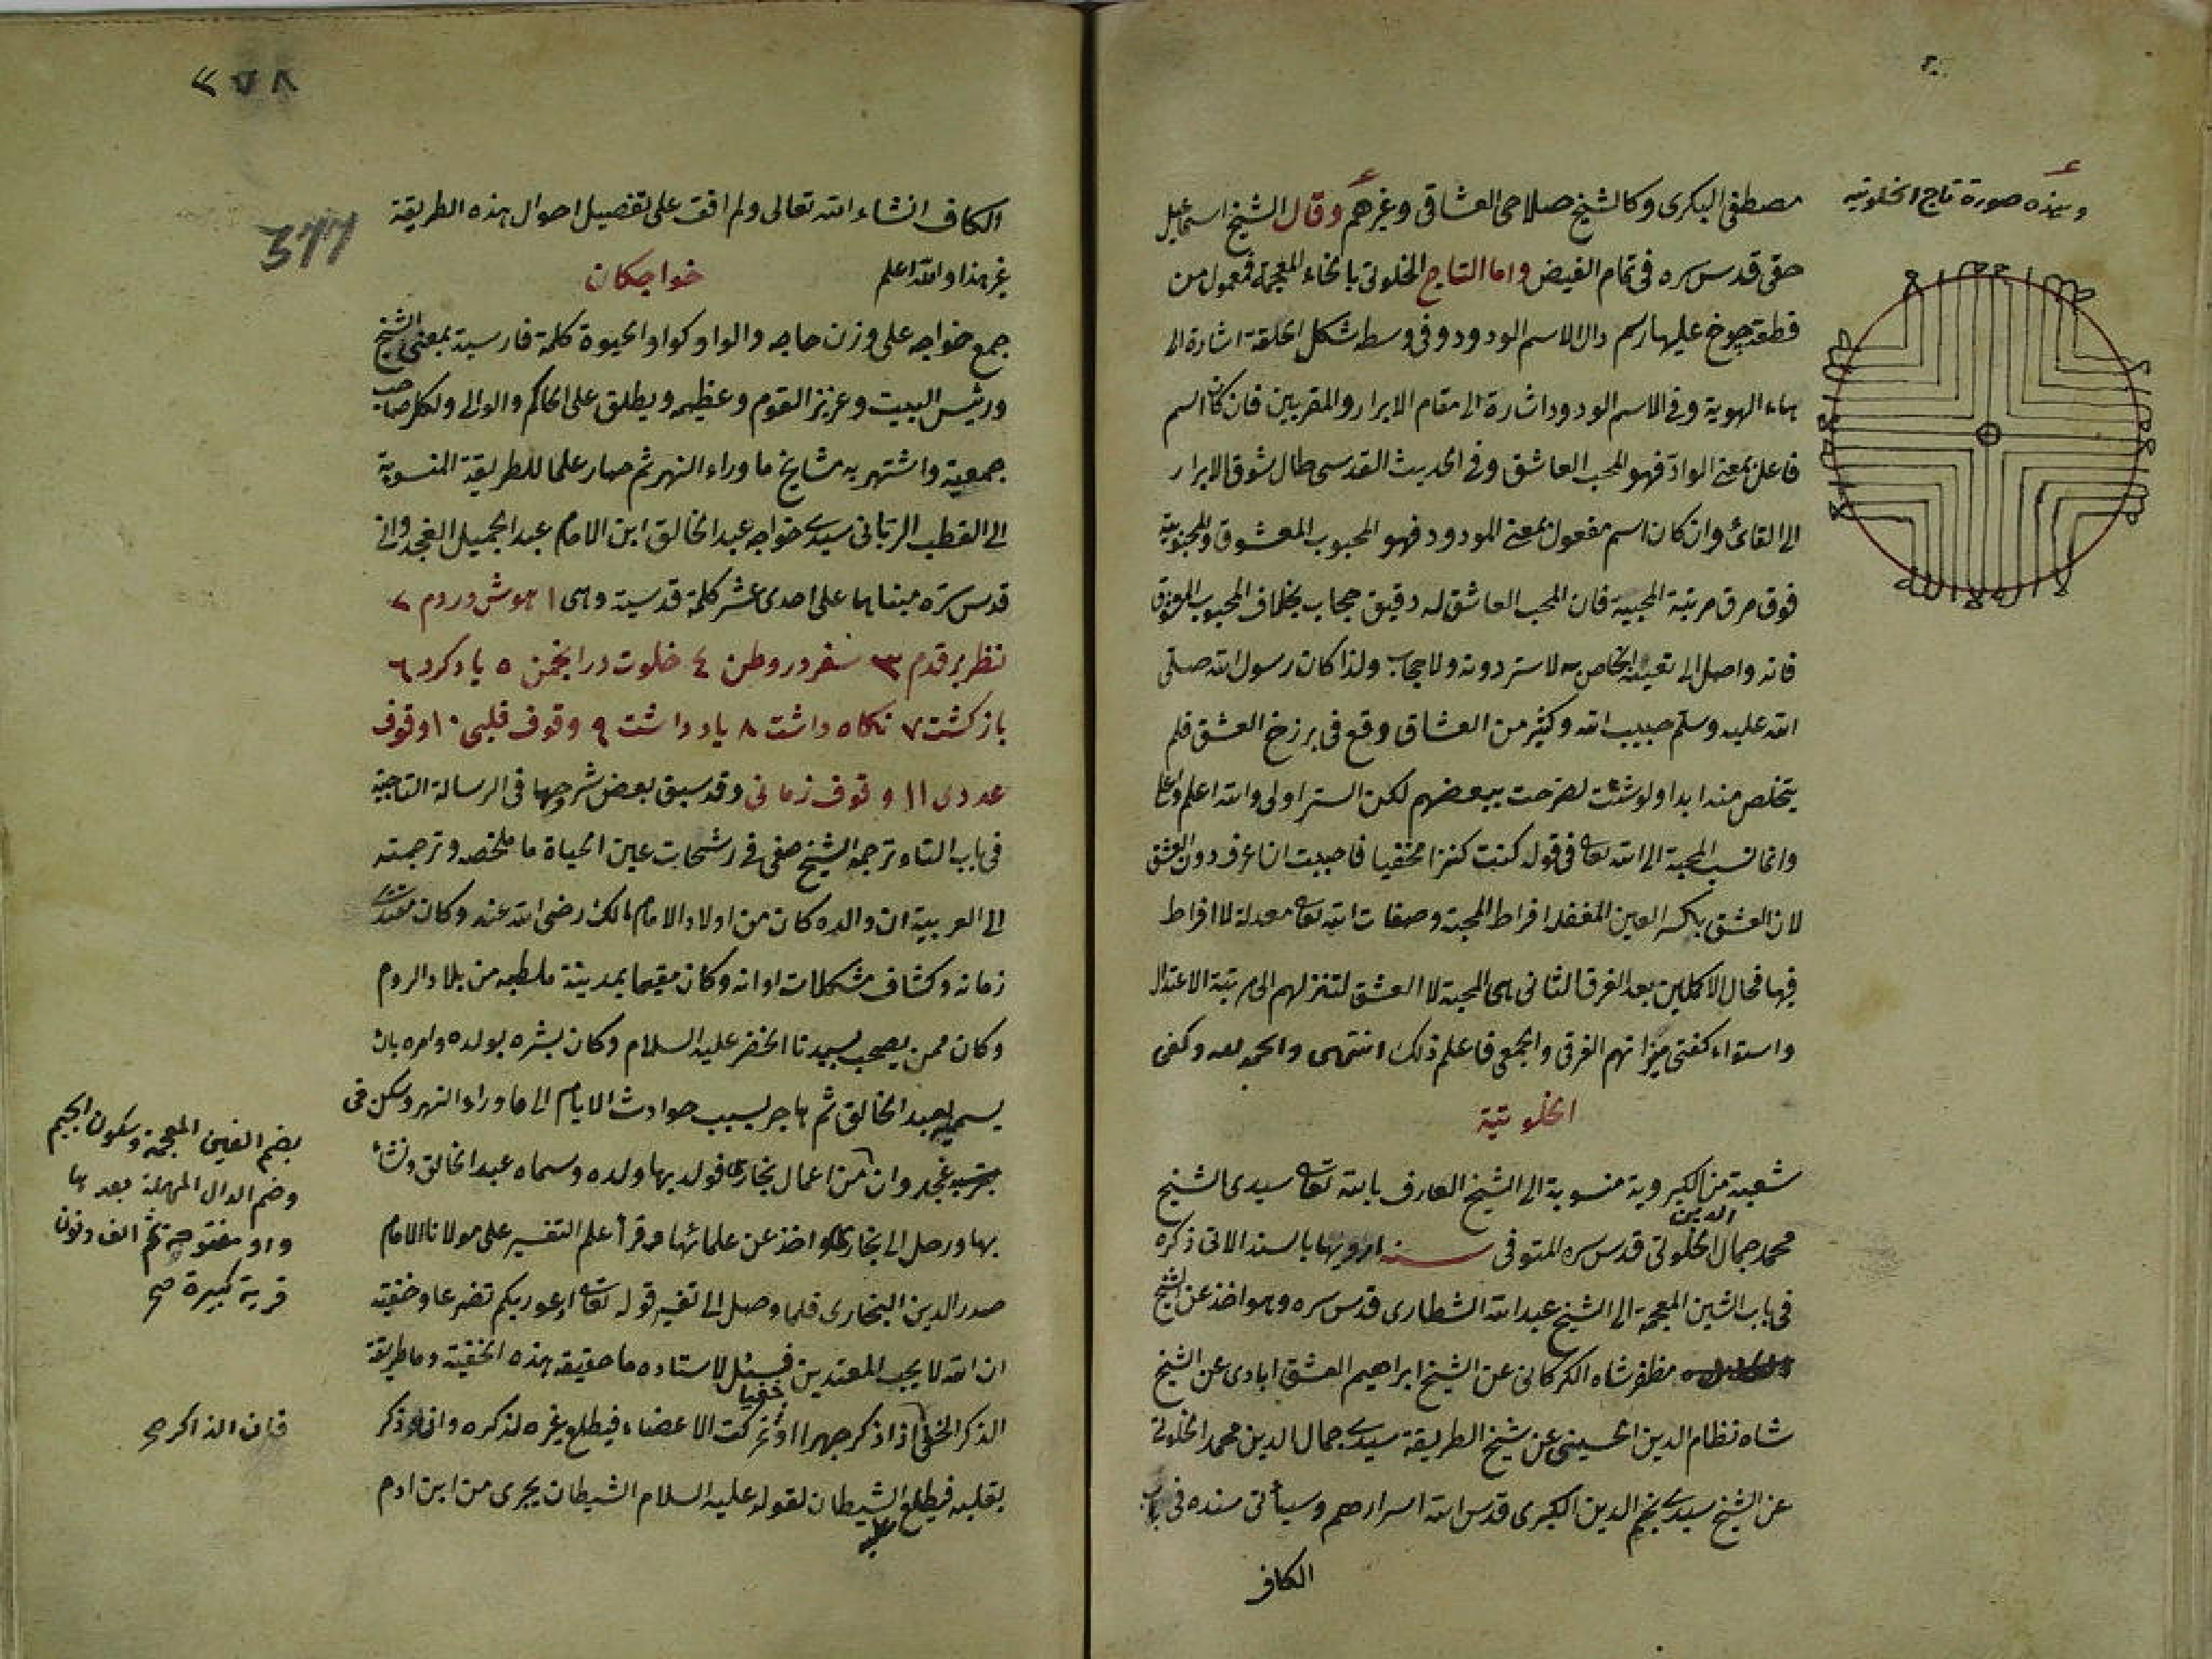 وهذه صورة تاج الخلوتيه
مصطفى البكرى وكالشيخ صلاحى العشاقى وغيرهم وقال الشيخ اسماعيل
حقى قدس سره فى تمام الفيض واما التاج الخلوتى بالخاء المعجمة فمعمول من
قطعة جوخ عليها رسم دال الاسم الودود وفى وسطه شكل الحلقة اشارة الى
هاء الهوية وفى الاسم الودود اشارة الى مقام الابرار والمقربين فان كان اسم
فاعل بمعنى الوادّ فهو المحب العاشق وفى الحديث القدسى طال شوق الابرار
الى لقائى وان كان اسم مفعول بمعنى المودود فهو المحبوب المعشوق والمحبوبية
فوق مرتبة المحبية فان المحب العاشق له دقيق حجاب بخلاف المحبوب المعشوق
فانه واصل الى تعينه الخاص به لا ستر دونه ولا حجاب ولذا كان رسول الله صلى
الله عليه وسلم حبيب الله وكثير من العشاق وقع فى برزخ العشق فلم
يتخلص منه ابدا ولو شئت لصرحت ببعضهم لكن الستر اولى والله اعلم
وانما نسب المحبة الى الله تعالى فى قوله كنت كنزا مخفيا فاحببت ان اعرف دون العشق
لان العشق بكسر العين المغفلة افراط المحبة وصفات الله تعالى معدلة لا افراط
فيها فحال الاكملين بعد الفرق الثانى هى المحبة لا العشق لتنزلهم الى مرتبة الاعتدال
واستواء كفتى ميزانهم الفرق والجمعى فاعلم ذلك انتهى والحمد لله وكفى
الخلوتية
شعبة من الكبروية منسوبة الى الشيخ العارف بالله تعالى سيدى الشيخ
محمد جمال الدين الخلوتى قدس سره المتوفى سنه ارويها بالسند الاتى ذكره
فى باب الشين المعجمة الى الشيخ عبد الله الشطارى قدس سره وهو اخذ عن الشيخ
مظفر شاه الكركانى عن الشيخ ابراهيم العشق ابادى عن الشيخ
شاه نظام الدين الحسينى عن شيخ الطريقة سيدى جمال الدين محمد الخلوتى
عن الشيخ سيدى نجم الدين الكبرى قدس الله اسرارهم وسيأتى سنده فى باب
الكاف
٢٧٨
377
الكاف انشاء الله تعالى ولم اقف على تفصيل احوال هذه الطريقة
غير هذا والله اعلم خواجكان
جمع خواجه على وزن حاجه والواو كواو الحيوة كلمة فارسية بمعنى الشيخ
ورئيس البيت وعزيز القوم وعظيمه ويطلق على الحاكم والوالى ولكل صاحب
جمعية واشتهر به مشايخ ما وراء النهر ثم صار علما للطريقة المنسوبة
الى القطب الربانى سيدى خواجه عبد الخالق ابن الامام عبد الجميل الغجدوانى
قدس سره مبناها على احدى عشر كلمة قدسية وهى ١ هوش دردم ٢
نظر بر قدم ٣ سفر در وطن ٤ خلوت در انجمن ٥ ياد كرد ٦
بازكشت ٧ نكاه داشت ٨ ياد داشت ٩ وقوف قلبى ١٠ وقوف
عددى ١١ وقوف زمانى وقد سبق بعض شروحها فى الرسالة التاجية
فى باب التاء وترجمه الشيخ صفى فى رشحات عين الحياة ما ملخصه وترجمته
الى العربية ان والده كان من اولاد الامام مالك رضى الله عنه وكان مقتدى
زمانه وكشاف مشكلات اوانه وكان مقيما بمدينة ملطيه من بلاد الروم
وكان ممن يصحب سيدنا الخضر عليه السلام وكان بشره بولده وامره بان
يسميه بعبد الخالق ثم هاجر بسبب حوادث الايام الى ما وراء النهر وسكن فى
غجدوان من اعمال بخارى فولد بها ولده وسماه عبد الخالق ونشأ
بها ورحل الى بخارى واخذ عن علمائها وقرأ علم التفسير على مولانا الامام
صدر الدين البخارى فلما وصل الى تفسير قوله تعالى ادعوا ربكم تضرعا وخفية
ان الله لا يحب المعتدين فسئل لاستاده ما حقيقة هذه الخفية وما طريقة
الذكر الخفى اذا ذكر جهرا او خفيا تحركت الاعضاء فيطلع غيره لذكره وان ذكر
بقلبه فيطلع عليه الشيطان لقوله عليه السلام الشيطان يجرى من ابن ادم
بضم الغين المعجمة وسكون الجيم
وضم الدال المهملة بعدها
واو مفتوحة ثم الف ونون
قرية كبيرة صح
فان الذاكر صح